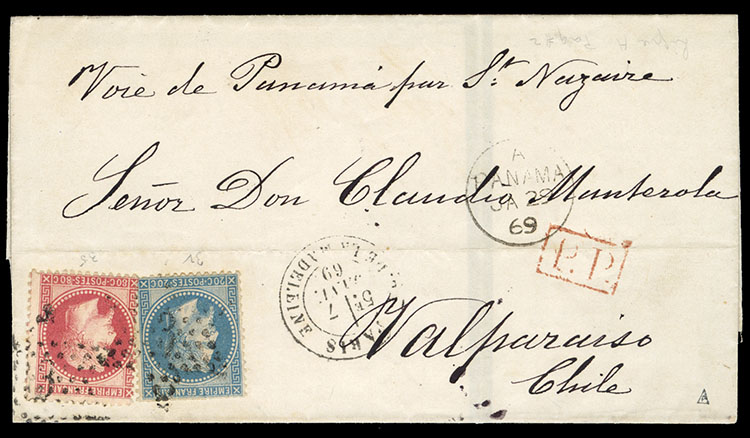 Voie de Panamá par St. Nazaire
Señor Don Claudio Manterola
A
PANAMA
JA 28
69
P.P.
PARIS PL. DE LA MADELEINE
5E
7
JANV.
69
Valparaiso
Chile
80C·POSTES·80C
EMPIRE FRANÇAIS
20C·POSTES·20C
EMPIRE FRANÇAIS